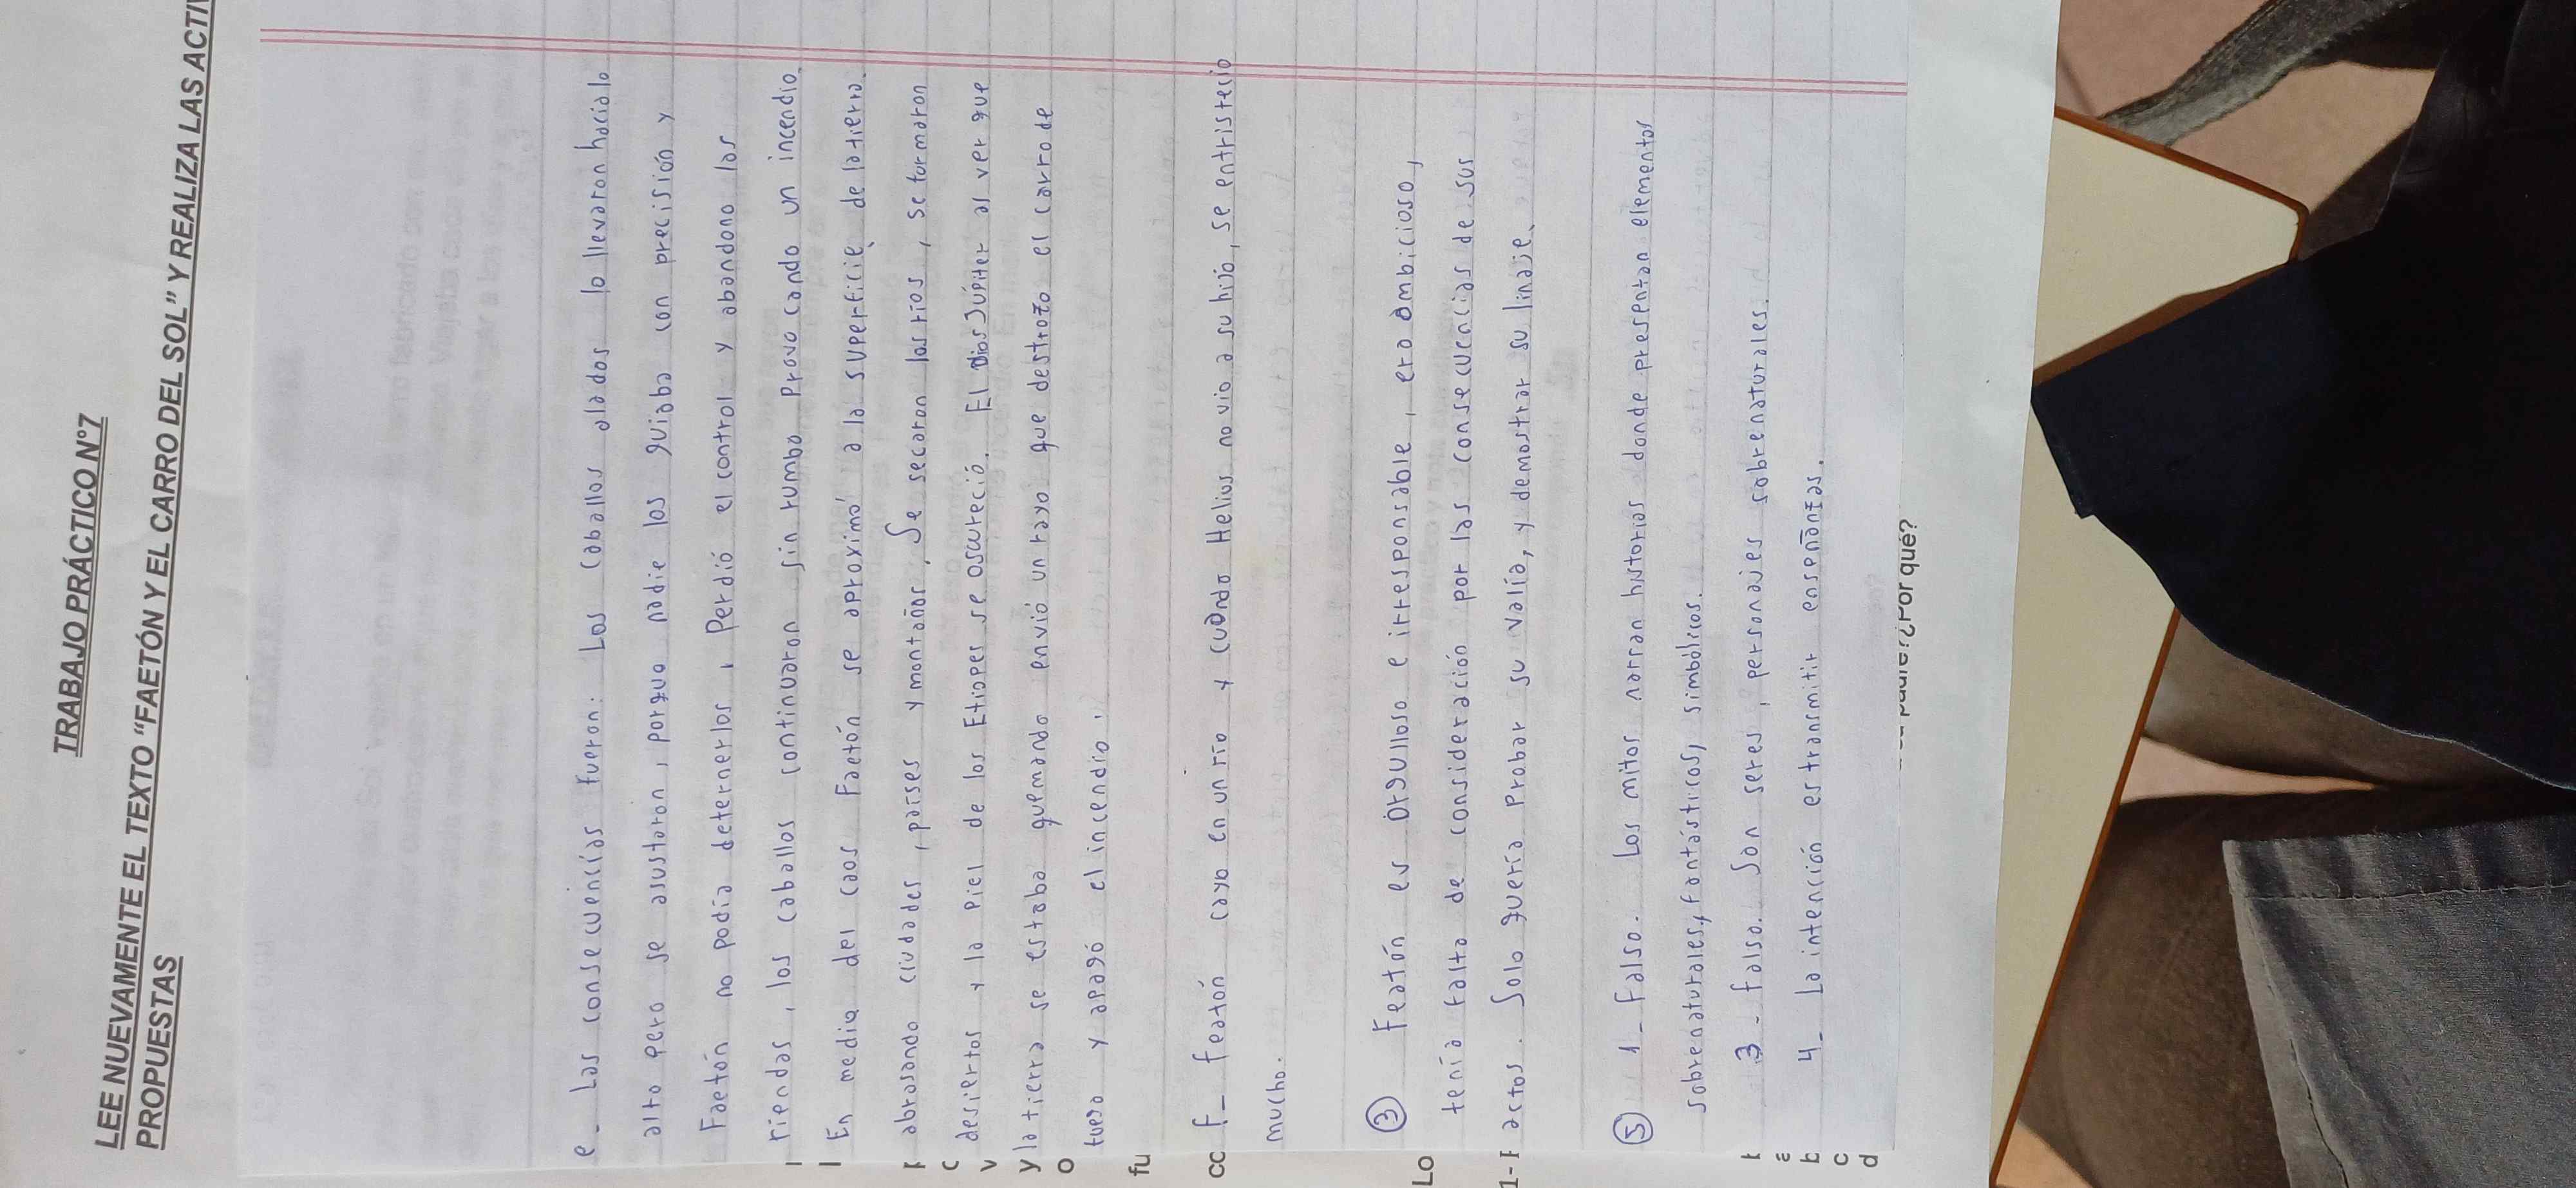 TRABAJO PRÁCTICO N°7
LEE NUEVAMENTE EL TEXTO "FAETÓN Y EL CARRO DEL SOL" Y REALIZA LAS ACTIV
PROPUESTAS
e_ Las consecuencias fueron: Los caballos alados lo llevaron hacia lo
alto pero se asustaron, porque nadie los guiaba con precisión y
Faetón no podía deternerlos, Perdió el control y abandono las
riendas, los caballos continuaron sin rumbo provocando un incendio.
En medio del caos Faetón se aproximó a la superficie de la tierra,
abrasando ciudades, países y montañas, Se secaron los ríos, se turmaron
desiertos y la piel de los Etiopes se oscureció. El Dios Júpiter al ver que
y la tierra se estaba quemando envió un rayo que destrozo el carro de
fuego y apagó el incendio.
fu
cc
f_ Featón cayo en un río y cuando Helius no vio a su hijo, se entristecio
mucho.
③ Featón es orgulloso e irresponsable, era ambicioso,
Lo
tenía falta de consideración por las consecuencias de sus
actos. Solo quería probar su valía, y demostrar su linaje.
⑤ 1_ Falso. Los mitos narran historias donde presentan elementos
sobrenaturales, fantásticos, simbólicos.
3_ falso. Son seres, personajes sobrenaturales.
4_ La intención es transmitir enseñanzas.
c
d
padre? ¿Por qué?